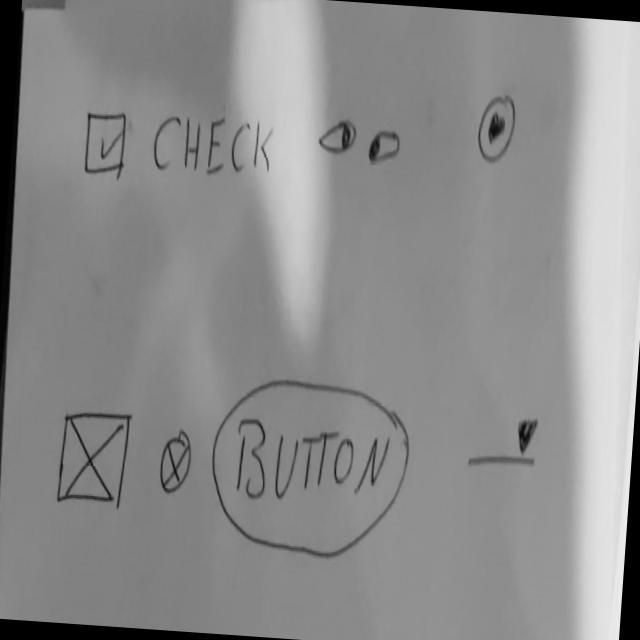 CHECK
BUTTON